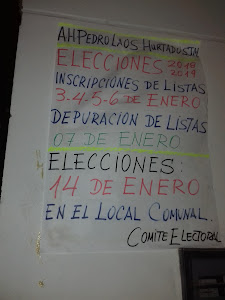 AH PEDRO LAOS HURTADO SJM
ELECCIONES 2018
2019
INSCRIPCIONES DE LISTAS
3-4-5-6 DE ENERO
DEPURACION DE LISTAS
07 DE ENERO
ELECCIONES:
14 DE ENERO
EN EL LOCAL COMUNAL.
COMITE ELECTORAL